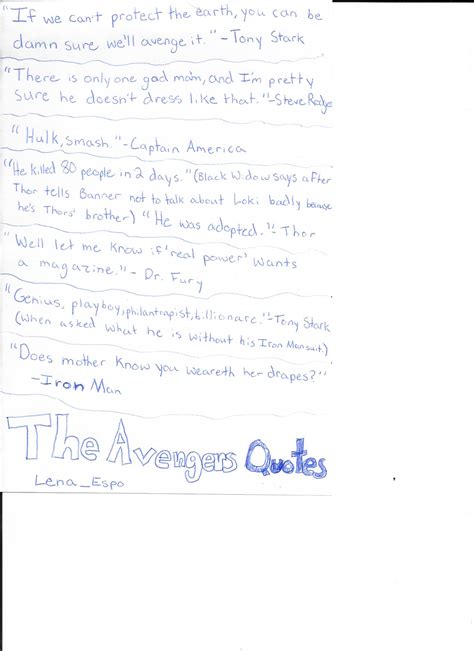 "If we can't protect the earth, you can be
damn sure we'll avenge it." -Tony Stark
"There is only one god mam, and I'm pretty
sure he doesn't dress like that."-Steve Rodge
"Hulk, smash."-Captain America
"He killed 80 people in 2 days." (Black Widow says after
Thor tells Banner not to talk about Loki badly because
he's Thors' brother) "He was adopted."- Thor
"Well let me know if 'real power' wants
a magazine." - Dr. Fury
"Genius, playboy, philantrapist, billionare."-Tony Stark
(when asked what he is without his Iron Man suit)
"Does mother know you weareth her drapes?"
-Iron Man
The Avengers Quotes
Lena_Espo